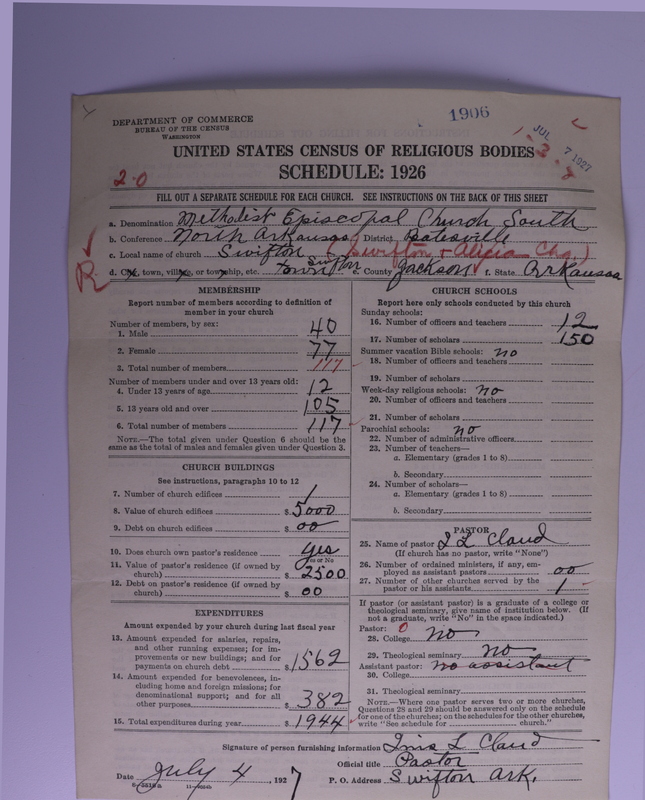 DEPARTMENT OF COMMERCE
BUREAU OF THE CENSUS
WASHINGTON
1906
JUL 7 1927
1-3-8
UNITED STATES CENSUS OF RELIGIOUS BODIES
SCHEDULE: 1926
2-0
FILL OUT A SEPARATE SCHEDULE FOR EACH CHURCH. SEE INSTRUCTIONS ON THE BACK OF THIS SHEET
a. Denomination Methodist Episcopal Church South
b. Conference North Arkansas District Batesville
c. Local name of church Swifton (Swifton + Alicia Chg.)
R
d. City, town, village, or township, etc. town Swifton e. County Jackson f. State Arkansas
MEMBERSHIP
Report number of members according to definition of
member in your church
Number of members, by sex:
1. Male 40
2. Female 77
3. Total number of members 117
Number of members under and over 13 years old:
4. Under 13 years of age 12
5. 13 years old and over 105
6. Total number of members 117
NOTE.—The total given under Question 6 should be
same as the total of males and females given under Question 3.
CHURCH BUILDINGS
See instructions, paragraphs 10 to 12
7. Number of church edifices 1
8. Value of church edifices $5000
9. Debt on church edifices $00
10. Does church own pastor's residence yes
Yes or No
11. Value of pastor's residence (if owned by
church) $2500
12. Debt on pastor's residence (if owned by
church) $00
EXPENDITURES
Amount expended by your church during last fiscal year
13. Amount expended for salaries, repairs,
and other running expenses; for im-
provements or new buildings; and for
payments on church debt $1562
14. Amount expended for benevolences, in-
cluding home and foreign missions; for
denominational support; and for all
other purposes $382
15. Total expenditures during year $1944
CHURCH SCHOOLS
Report here only schools conducted by this church
Sunday schools:
16. Number of officers and teachers 12
17. Number of scholars 150
Summer vacation Bible schools: no
18. Number of officers and teachers
19. Number of scholars
Week-day religious schools: no
20. Number of officers and teachers
21. Number of scholars
Parochial schools: no
22. Number of administrative officers
23. Number of teachers—
a. Elementary (grades 1 to 8)
b. Secondary
24. Number of scholars—
a. Elementary (grades 1 to 8)
b. Secondary
PASTOR
25. Name of pastor I L Claud
(If church has no pastor, write "None")
26. Number of ordained ministers, if any, em-
ployed as assistant pastors 00
27. Number of other churches served by the
pastor or his assistants 1
If pastor (or assistant pastor) is a graduate of a college or
theological seminary, give name of institution below. (If
not a graduate, write "No" in the space indicated.)
Pastor: 0
28. College no
29. Theological seminary no
Assistant pastor: no assistant
30. College
31. Theological seminary
NOTE.—Where one pastor serves two or more churches,
Questions 28 and 29 should be answered only on the schedule
for one of the churches; on the schedules for the other churches,
write "See schedule for church."
Signature of person furnishing information L Claud
Official title Pastor
Date July 4, 1927 P. O. Address Swifton Ark.